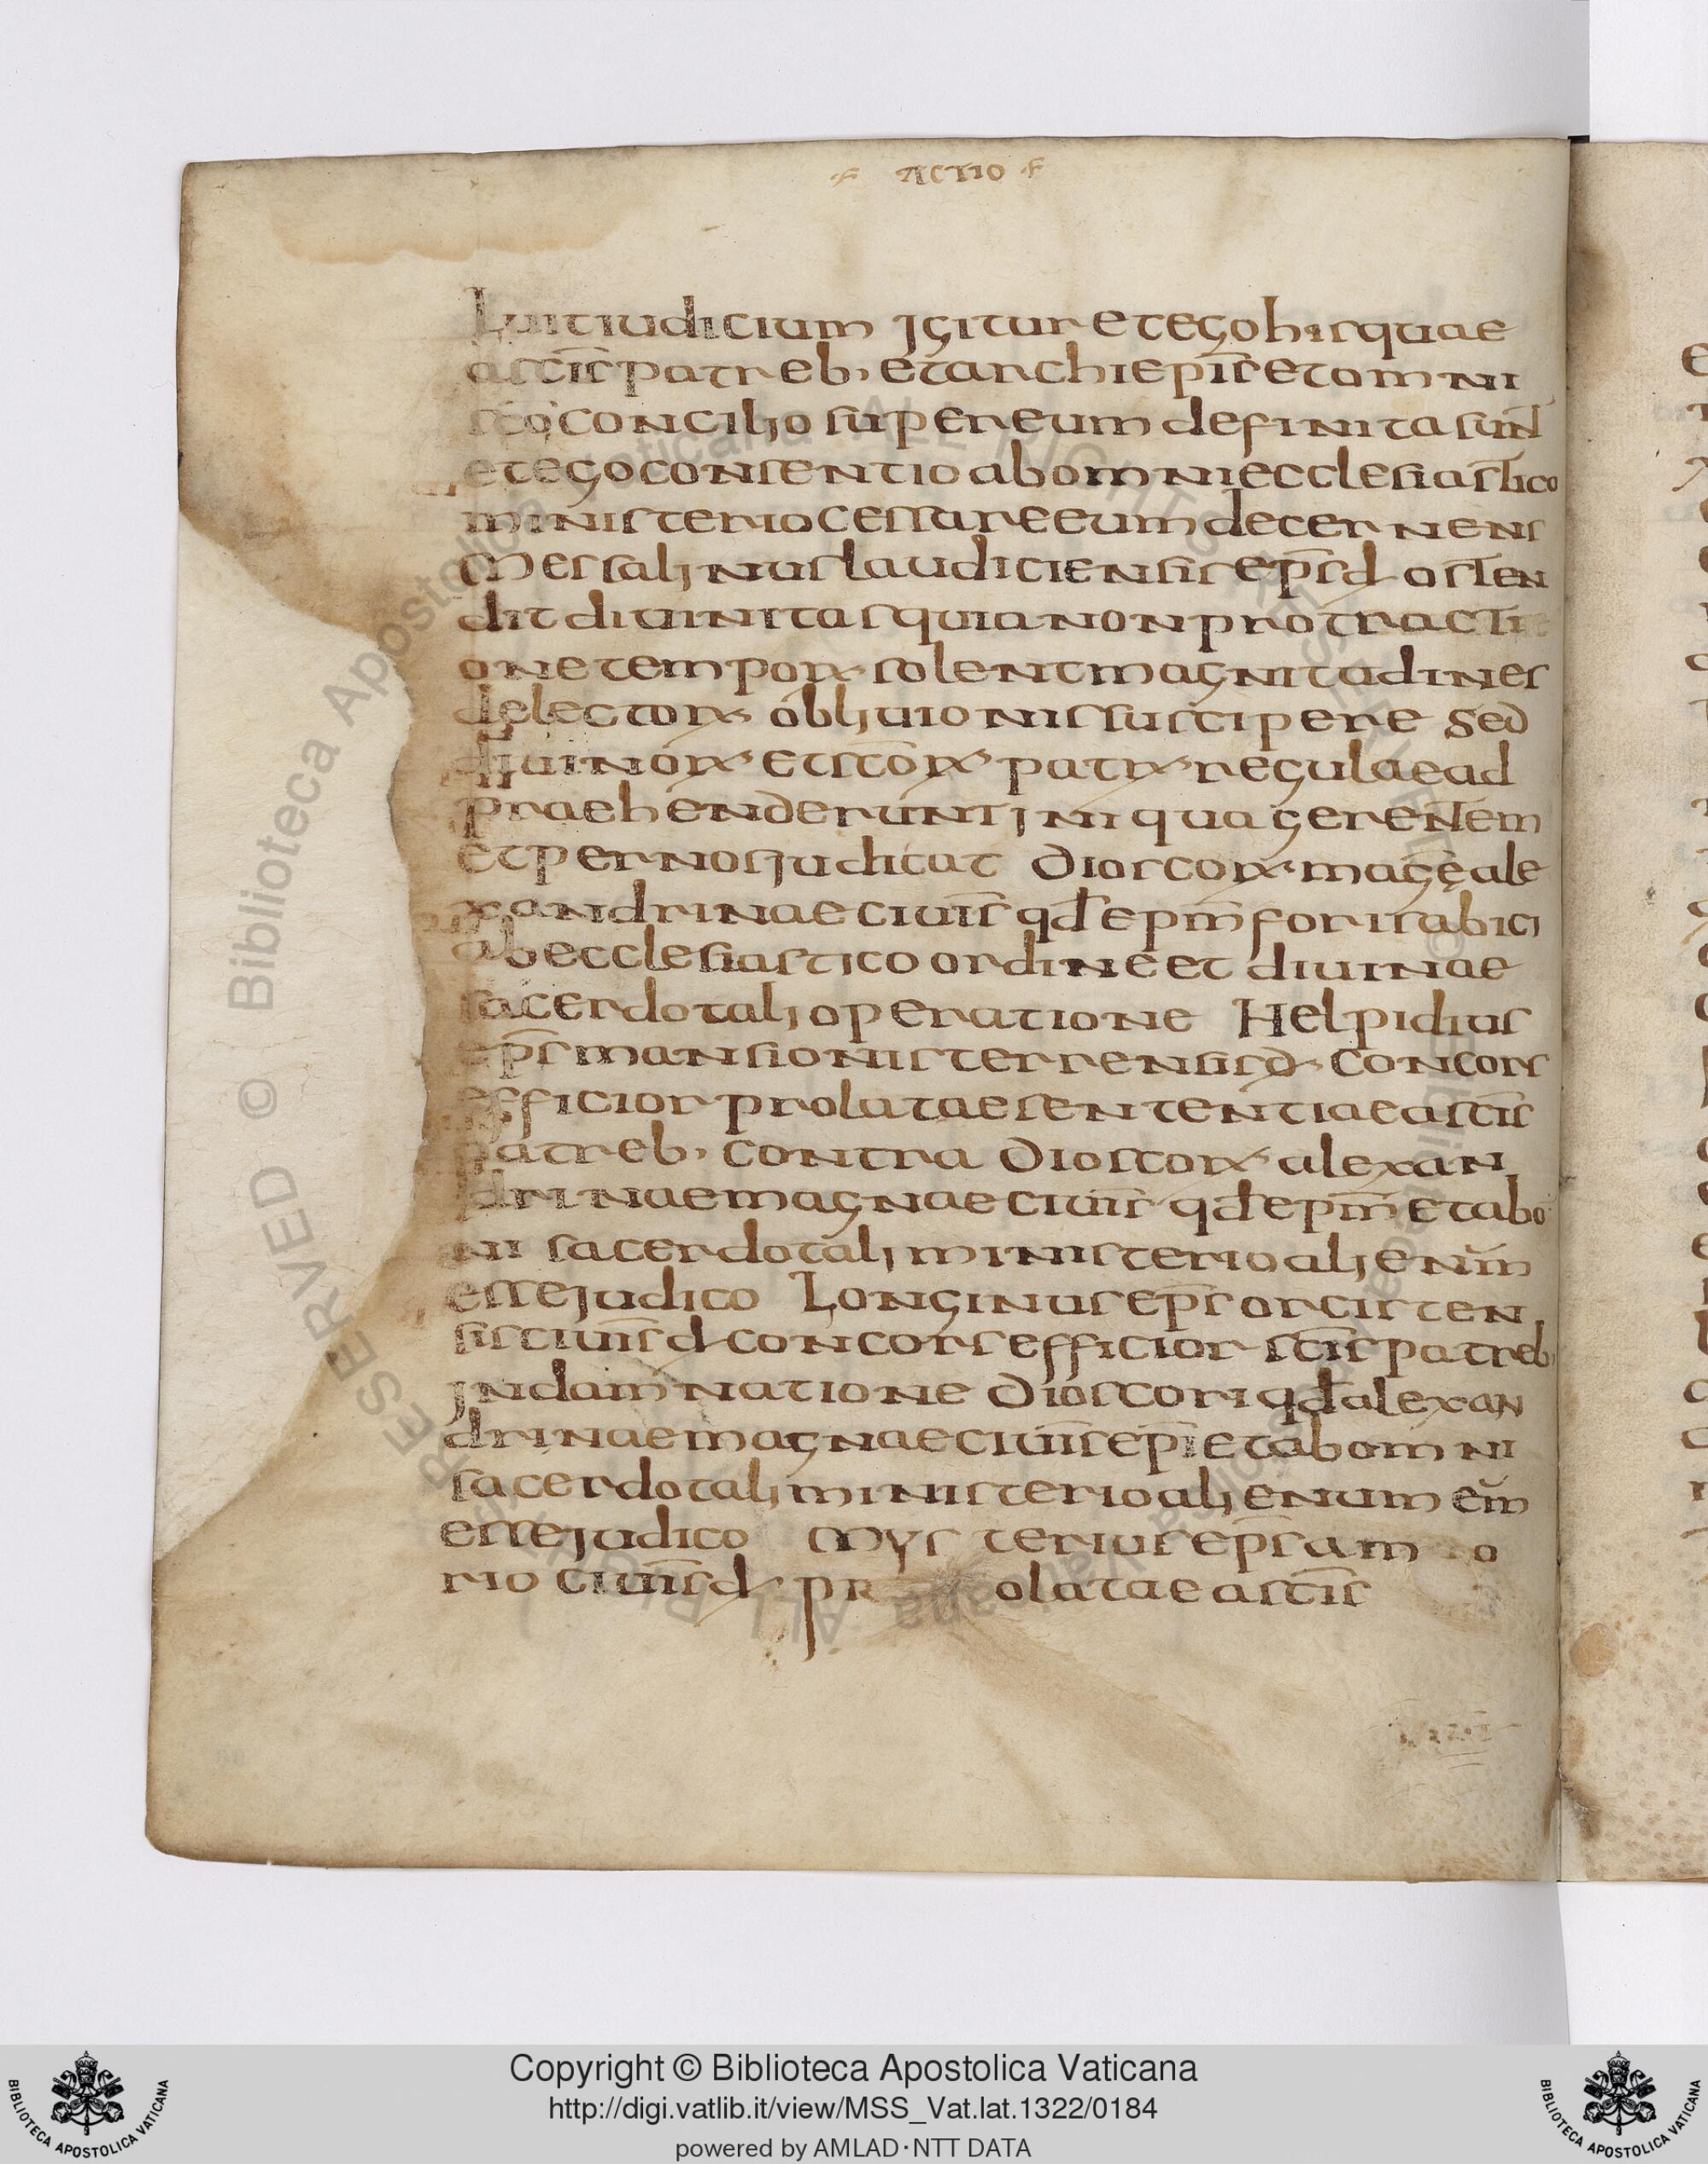 ACTIO
luitiudicium igitur et ego hisquae
a sc̄is patreb· et archiep̄is et omni
sc̄o concilio super eum definita sunt
et ego consentio ab omni ecclesiastico
ministerio cessare eum decernens
Messalinus laudiciensis ep̄s d̄ osten
dit diuinitas quia non protracti
one temporꝝ solent magnitudines
delectorꝝ obliuionis suscipere Sed
diuinorꝝ et sc̄orꝝ patrꝝ regulae ad
praehenderunt iniqua gerentem
et per nos iudicat dioscorꝝ magꝫ ale
xandrinae ciuit̄s qd̄ ep̄m foris abici
ab ecclesiastico ordine et diuinae
sacerdotali operatione Helpidius
ep̄s mansionis terrensis d̄ concors
efficior prolatae sententiae a sc̄is
patreb· contra dioscorꝝ alexan
drinae magnae ciuit̄s qd̄ ep̄m et ab o
ni sacerdotali ministerio alienūm
esse iudico Longinus ep̄s orcisten
sis ciuit̄s d̄ concors efficior sc̄is patreb·
in damnatione dioscori qd̄ alexan
drinae magnae ciuit̄s ep̄i et ab omni
sacerdotali ministerio alienum eūm
esse iudico Mysterius ep̄s am o
rio ciuit̄s d̄ prolatae a sc̄is
Copyright © Biblioteca Apostolica Vaticana
http://digi.vatlib.it/view/MSS_Vat.lat.1322/0184
powered by AMLAD·NTT DATA
BIBLIOTECA APOSTOLICA VATICANA
BIBLIOTECA APOSTOLICA VATICANA